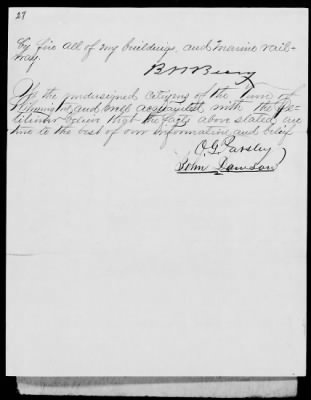 27
by fire all of my buildings, and marine rail-
way.
B W Beery
We the undersigned citizens of the Town of
Wilmington, and well acquainted with the Pe-
titioner believe that the facts above stated are
true to the best of our information and belief
O. G. Parsley
John Dawson